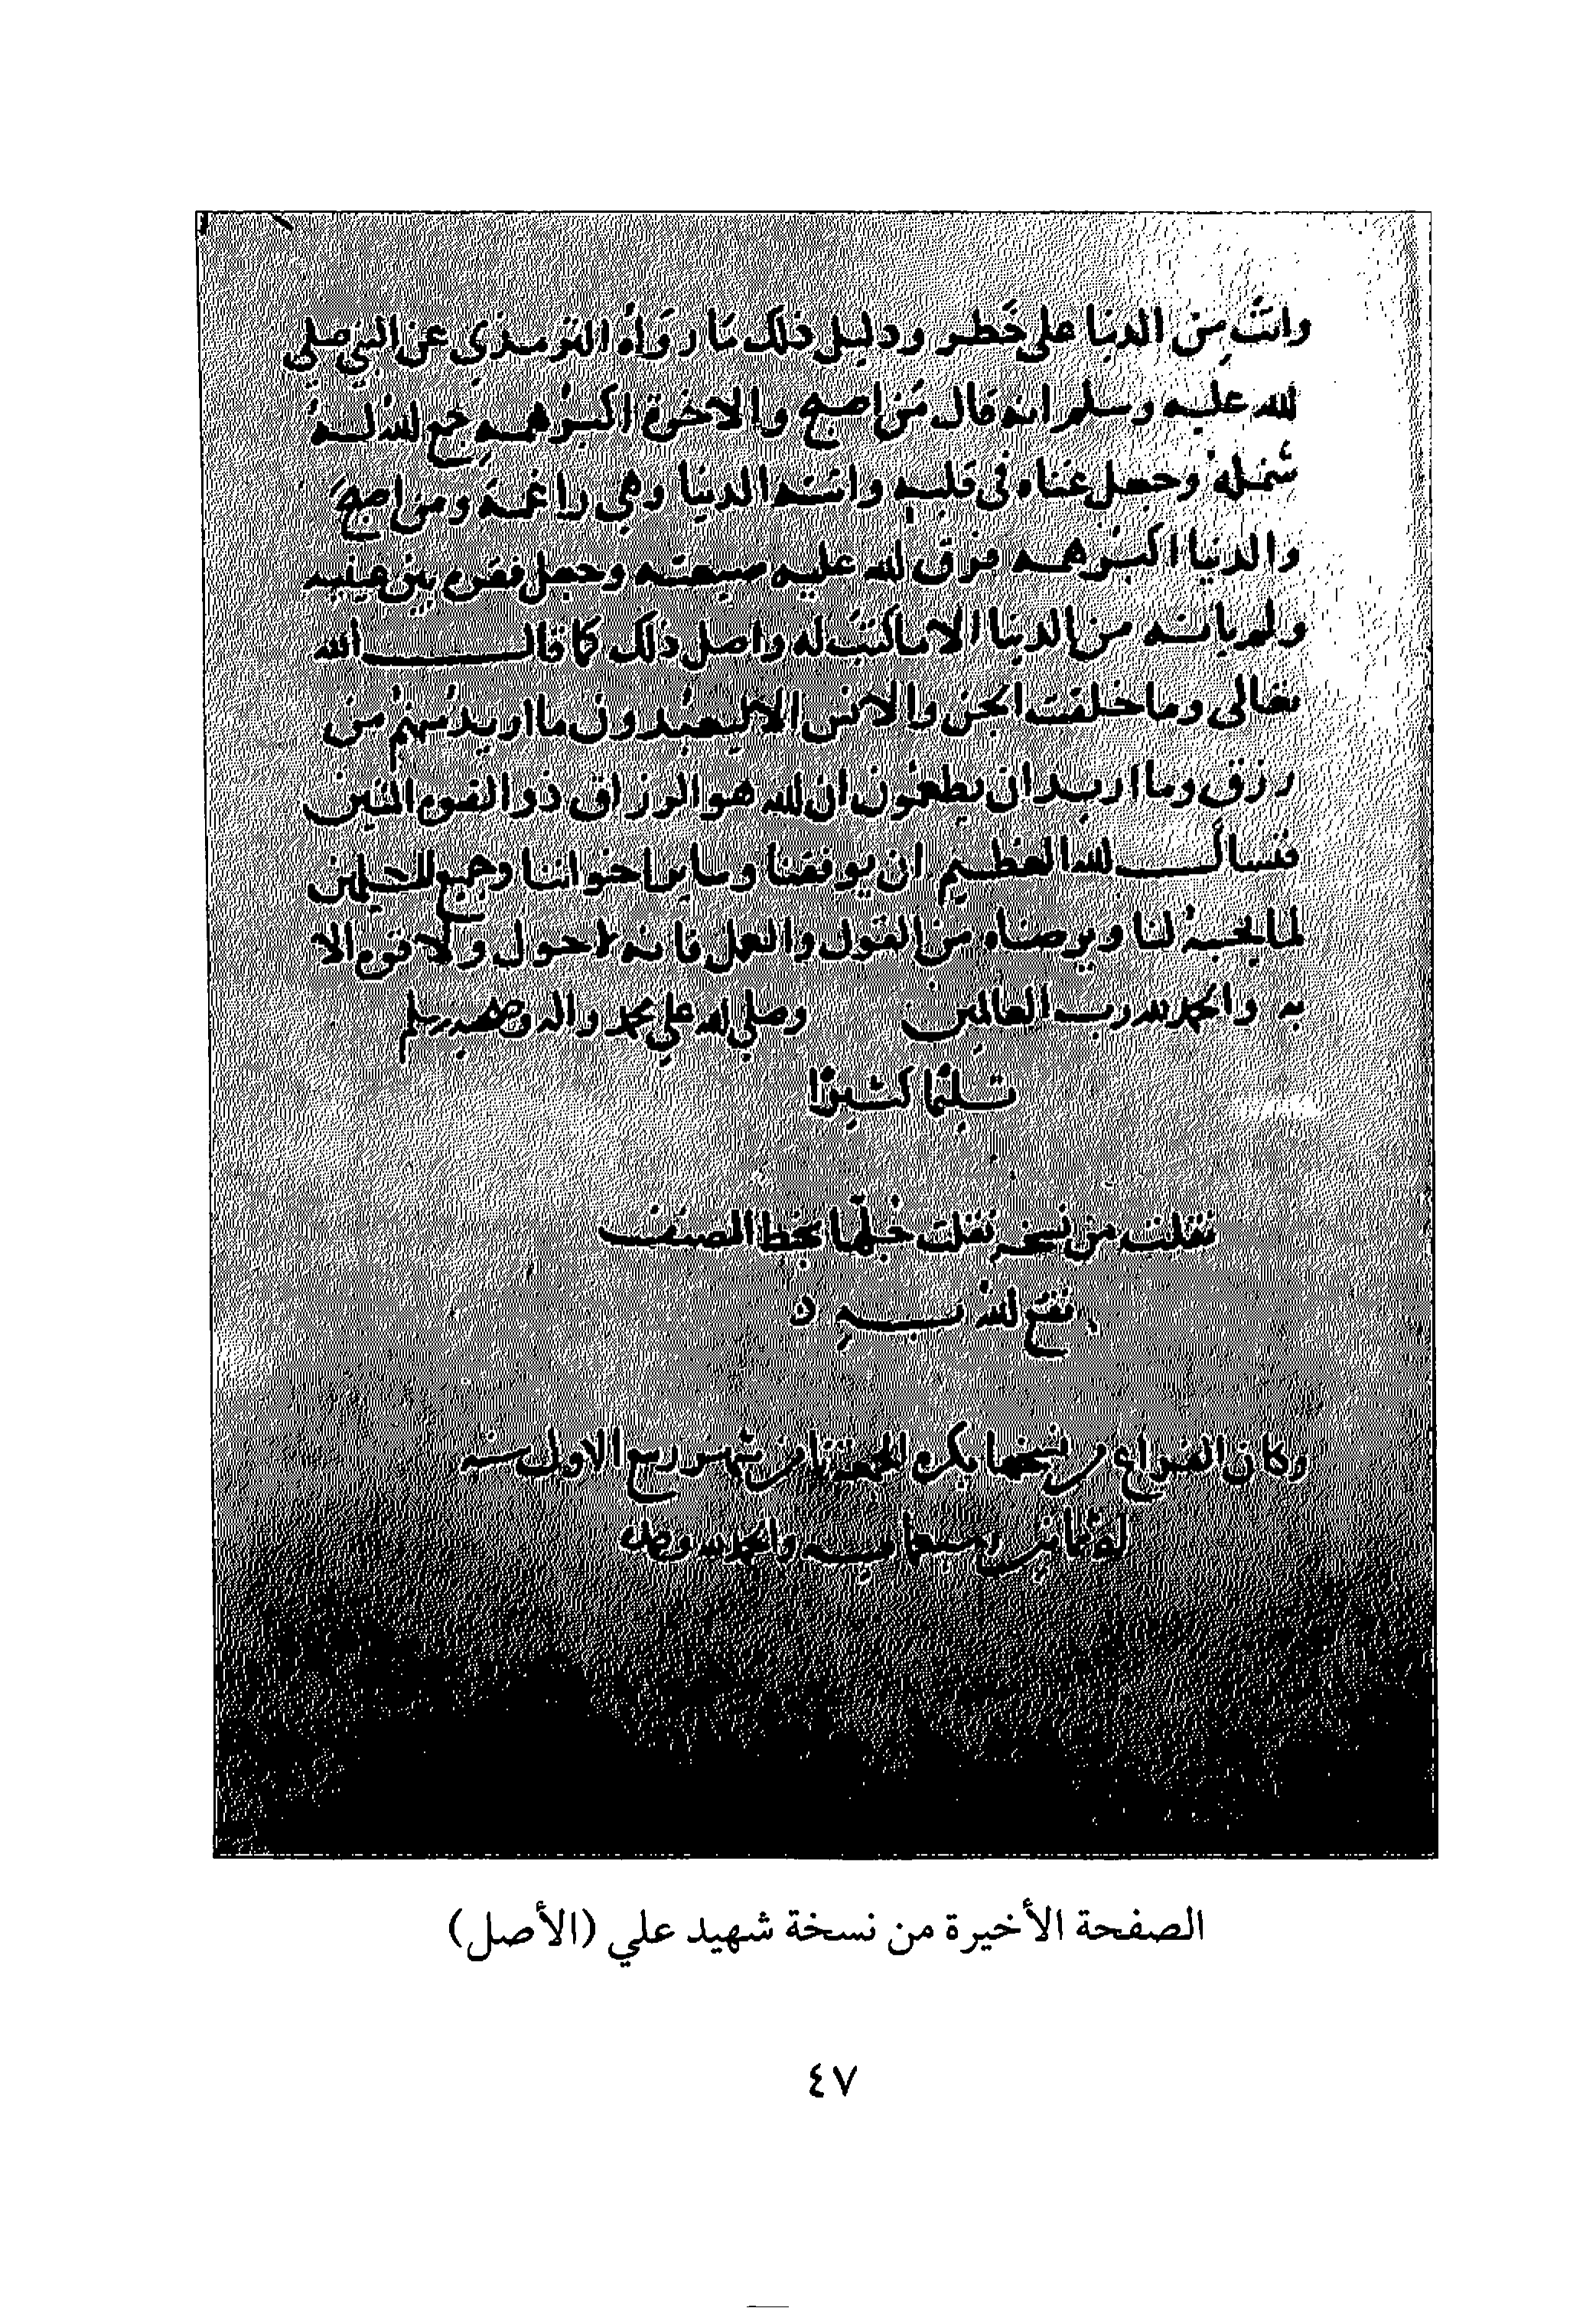 وانت من الدنيا على خطر ودليل ذلك ما رواه الترمذي عن النبي صلى
الله عليه وسلم انه قال من اصبح والاخرة اكبر همه جمع الله له
شمله وجعل غناه في قلبه واتته الدنيا وهي راغمة ومن اصبح
والدنيا اكبر همه فرق الله عليه ضيعته وجعل فقره بين عينيه
ولم ياته من الدنيا الا ما كتب له واصل ذلك كما قال الله
تعالى وما خلقت الجن والانس الا ليعبدون ما اريد منهم من
رزق وما اريد ان يطعمون ان الله هو الرزاق ذو القوه المتين
فنسال الله العظيم ان يوفقنا وساير اخواننا وجميع المسلمين
لما يحبه لنا ويرضاه من القول والعمل فانه لا حول ولا قوه الا
به والحمد لله رب العالمين وصلى الله على محمد واله وصحبه وسلم
تسليما كثيرا
نقلت من نسخه نقلت جلها بخط المصنف
نفع الله به
وكان الفراغ من نسخها بكره الجمعة ثامن شهر ربيع الاول سنه
ثمان وسبعمايه والحمد لله وحده
الصفحة الأخيرة من نسخة شهيد علي (الأصل)
٤٧